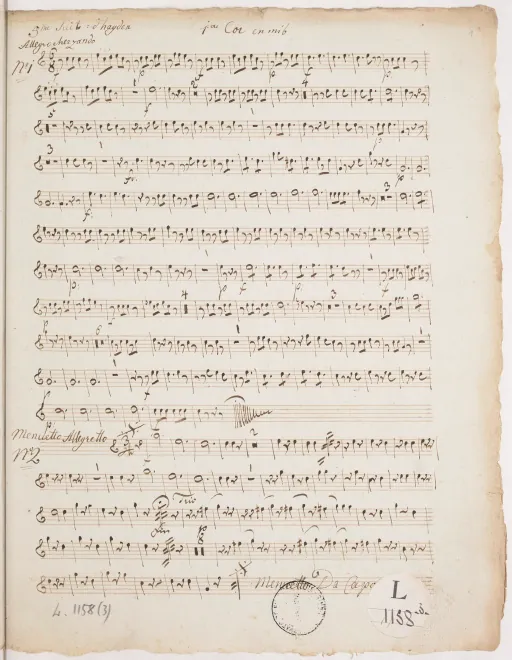 5me Suite d'hayden 1mo Cor en mib
Allegro scherzando
No 1
Menuetto Allegretto
No 2
Trio
fin
Menuetto Da Capo
L
1158
L. 1158(3)